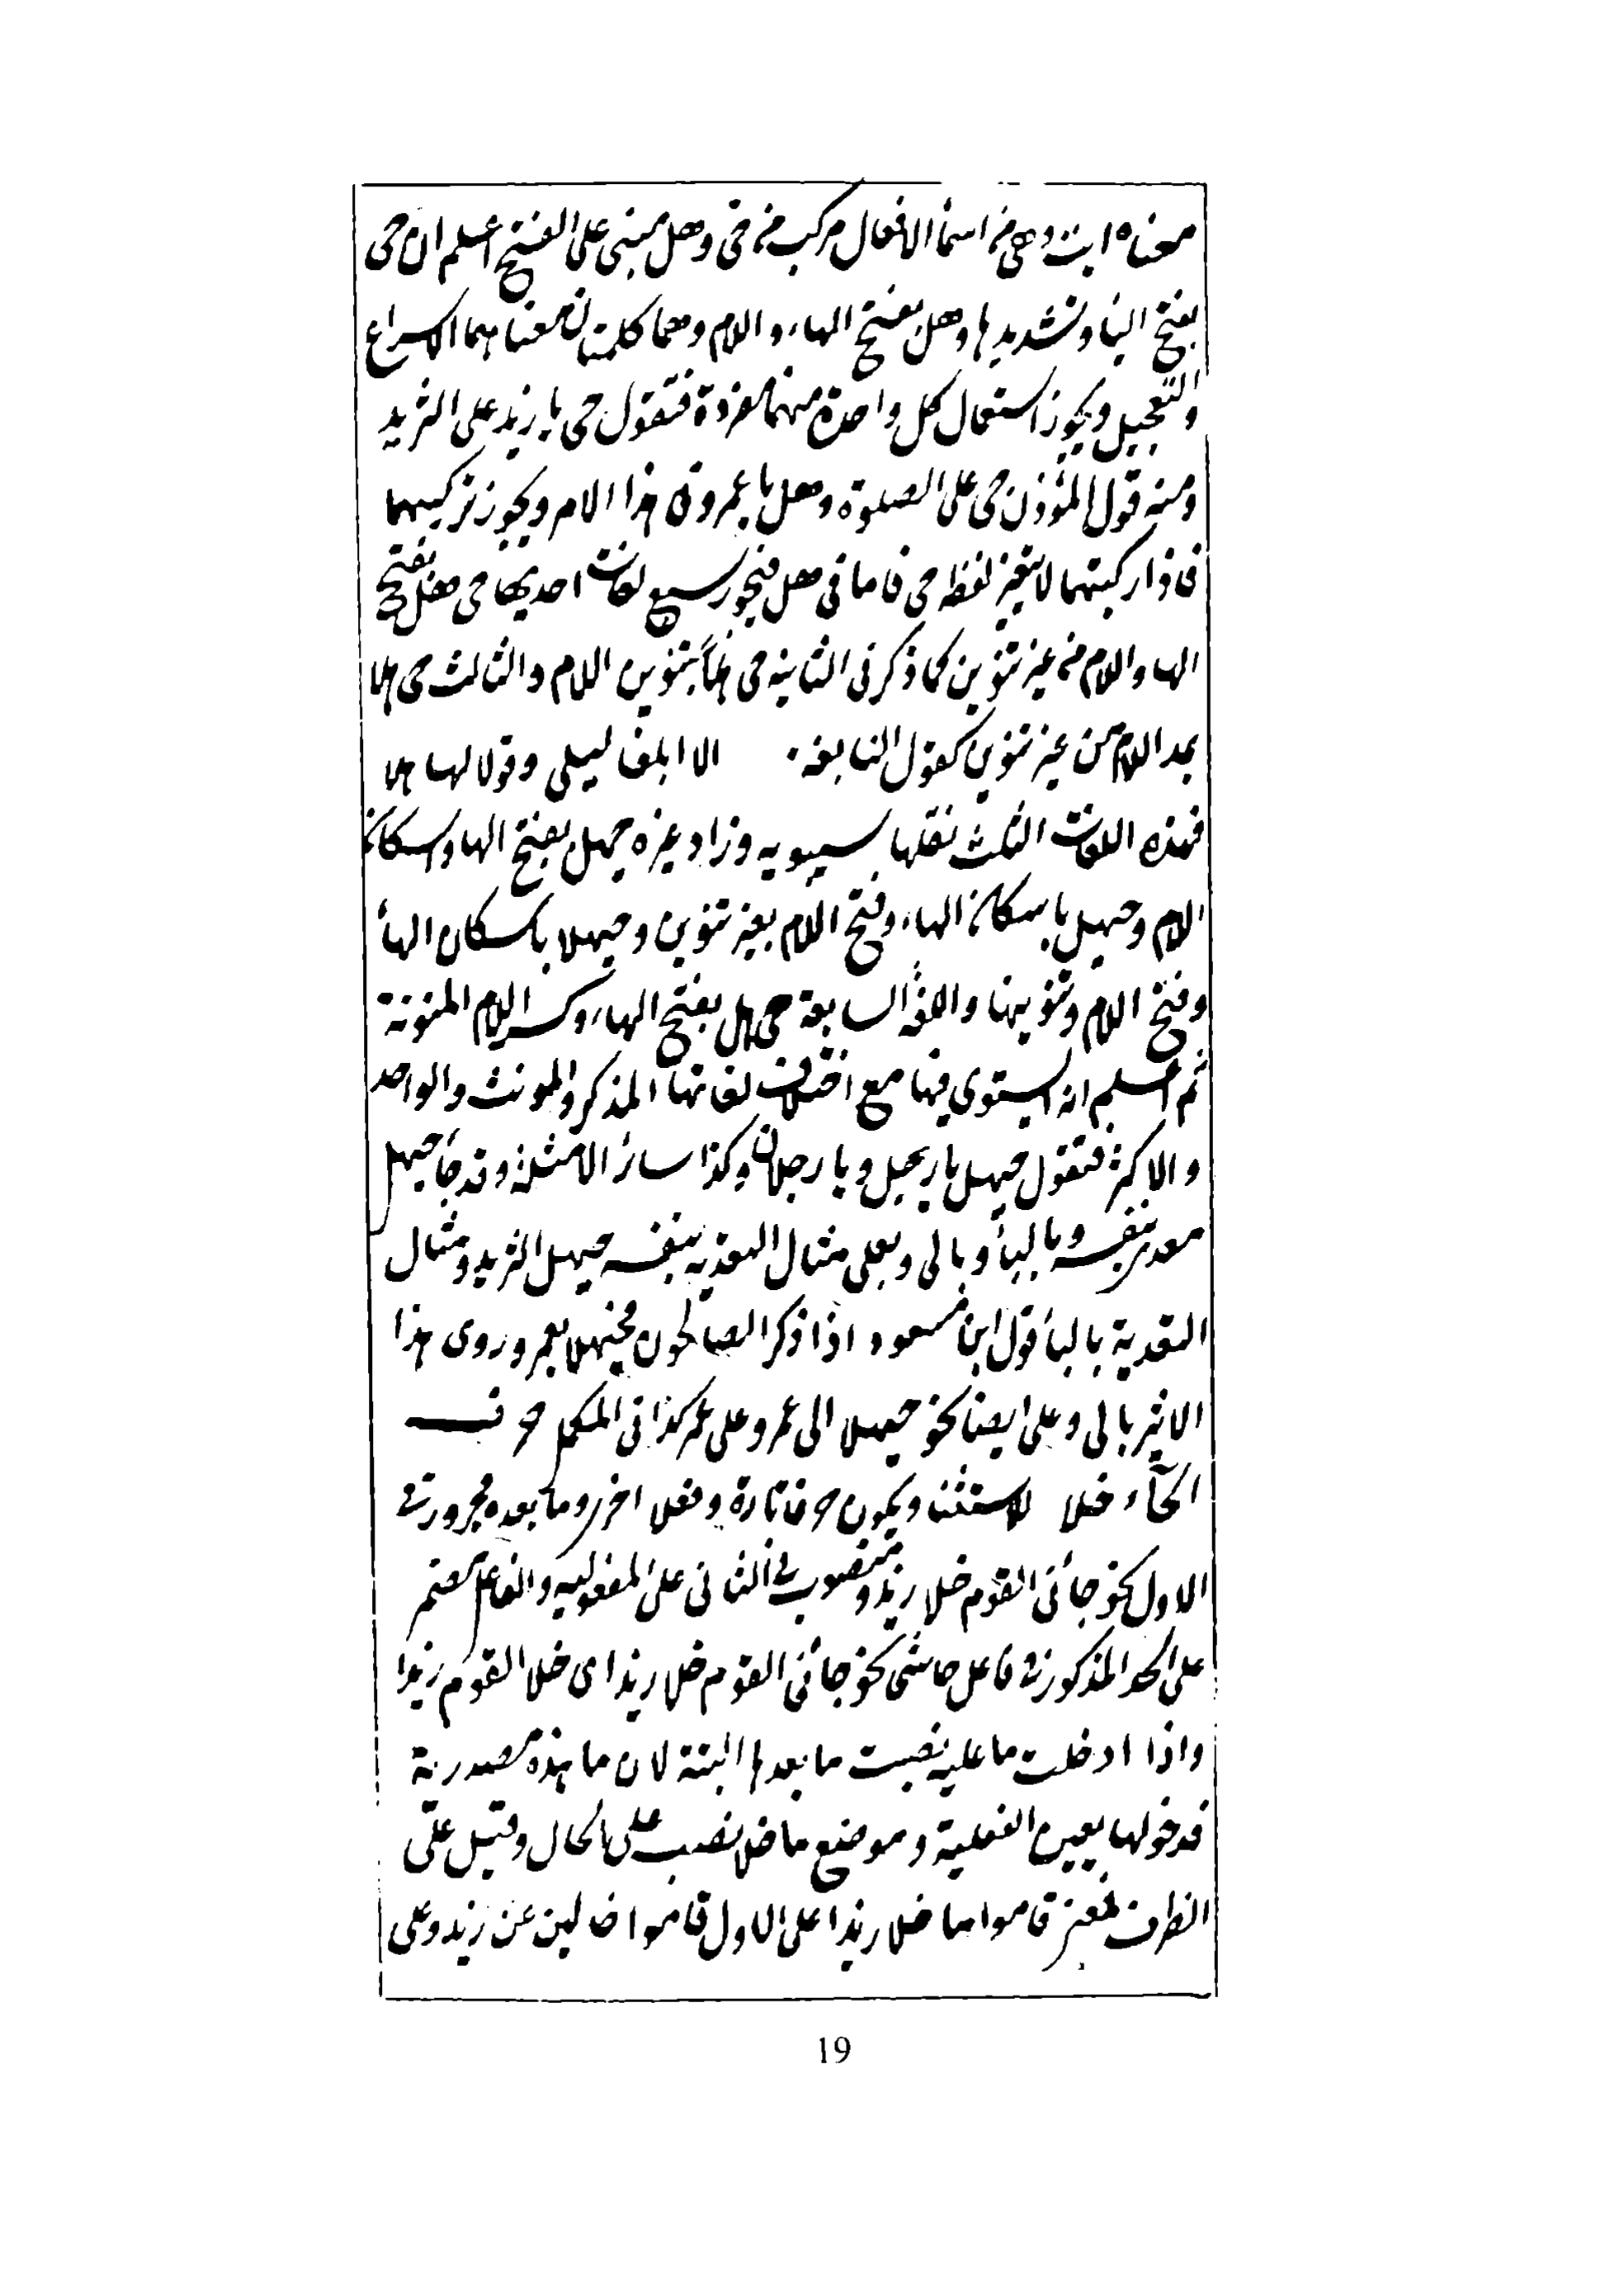 معناه ايت وهي من اسماء الافعال مركب من حي وهل مبني على الفتح اعلم ان حي
بفتح اليا وتشديدها وهل بفتح الهاء واللام وهما كلمتان معناهما الاسراع
والتعجيل ويجوز استعمال كل واحدة منهما مفردة فتقول حي يا زيد على الثريد
ومنه قول المؤذن حي على الصلوة وهل يا عمرو في هذا الامر ويجوز تركيبهما
فاذا ركبتهما لا يتغير لفظ حي فاما في هل فيجوز سبع لغات احديها حي هل بفتح
الها واللام من غير تنوين كما ذكر في الثانية حي هلاً بتنوين اللام والثالث حي هلا
بمد اللام من غير تنوين كقول النابغة الا ابلغا ليلى وقولا لها هلا
فهذه اللغات الثلث نقلها سيبويه وزاد غيره حيهل بفتح الها واسكان
اللام وحيهل باسكان الهاء وفتح اللام بغير تنوين وحيهلا باسكان الهأ
وفتح اللام وتنوينها واللغة السابعة حي هل بفتح الهاء وكسر اللام المنونة
ثم اعلم انه يستوي فيها مع اختلاف لغاتها المذكر والمونث والواحد
والاكثر فتقول حيهل يا رجل ويا رجلان وكذا سائر الامثلة وقد جأ حيهل
معدى بنفسه وبالبأ وبالى وبعلى مثال التعدية بنفسه حيهل الثريد ومثال
التعدية بالبأ قول ابن مسعود اذا ذكر الصالحون فحيهلا بعمر وروى هذا
الاثر بالى وعلى ايضا نحو حيهلا الى عمر وعلى عمر كذا في المكمل حرف
الحآء خلا للاستثنا ويكون حرفا تارة وفعلا اخرى وما بعده مجرور في
الاول نحو جائني القوم خلا زيد ومنصوب في الثاني على المفعولية والفاعل مضمر
على الحد المذكور في فاعل حاشى نحو جائني القوم خلا زيدا اى خلا القوم زيدا
واذا ادخلت ما عليه نصبت ما بعدها البتة لان ما هذه مصدرية
فدخولها يعين الفعلية وموضع ما خلا نصب على الحال وقيل على
الظرف فمعنى قاموا ما خلا زيدا على الاول قاموا خالين عن زيد وعلى
19